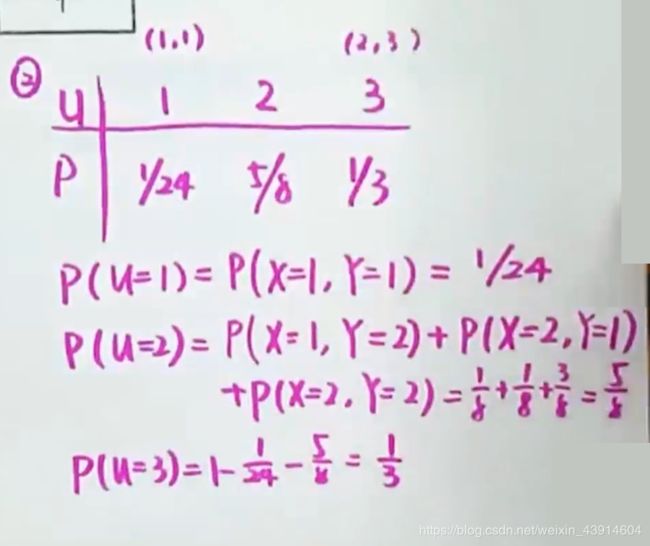 (1,1) (2,3)
② U 1 2 3
P 1/24 5/8 1/3
P(U=1)=P(X=1,Y=1)= 1/24
P(U=2)=P(X=1,Y=2)+P(X=2,Y=1)
+P(X=2,Y=2)=1/8+1/8+3/8=5/8
P(U=3)=1-1/24-5/8=1/3
https://blog.csdn.net/weixin_43914604